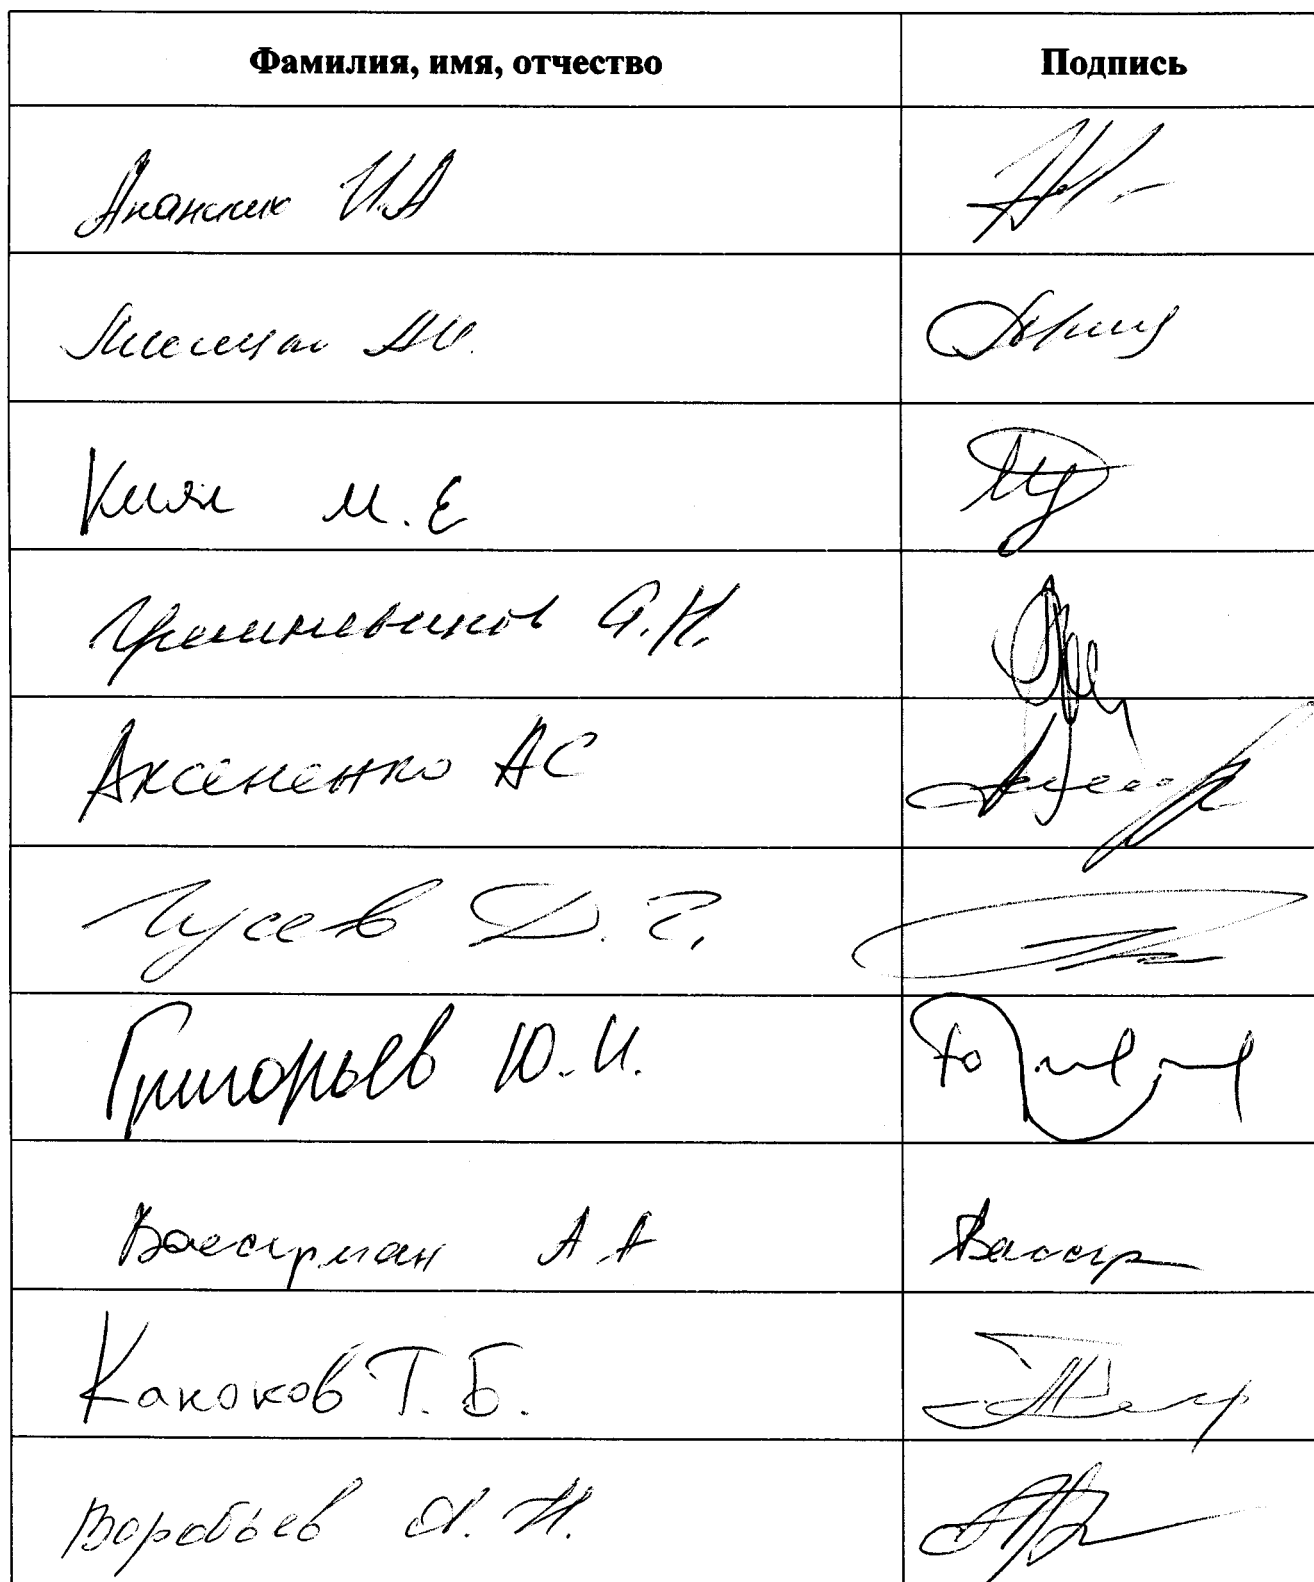 Фамилия, имя, отчество Подпись
Ананских И.А
А.И.
Киян М.Е
Грешневиков А.Н.
Аксененко АС
Гусев Д.Г.
Григорьев Ю.И.
Вассерман А А
Каноков Т.Б.
Воробьев А.Н.